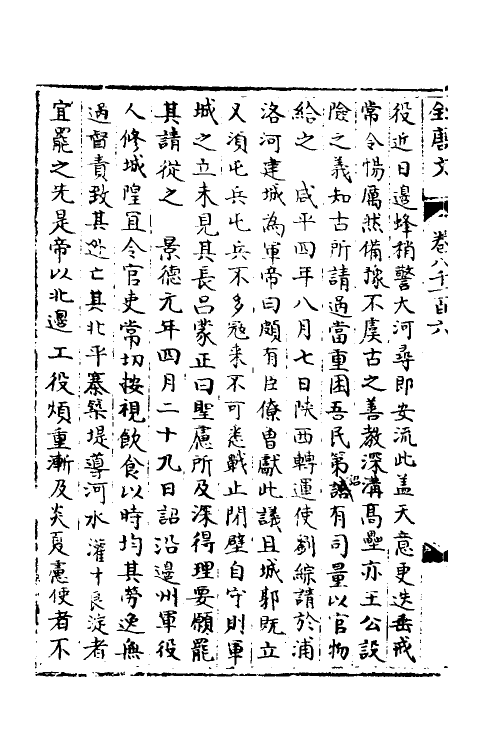 全唐文 卷八千一百六
役近日邊烽稍警大河尋即安流此蓋天意更迭垂戒
常令惕厲然備豫不虞古之善教深溝高壘亦王公設
險之義知古所請過當重困吾民第詔有司量以官物
給之 咸平四年八月七日陝西轉運使劉綜請於浦
洛河建城為軍帝曰頗有臣僚曾獻此議且城郭既立
又須屯兵屯兵不多寇来不可悉戰止閉壁自守則軍
城之立未見其長呂蒙正曰聖慮所及深得理要願罷
其請從之 景德元年四月二十九日詔沿邊州軍役
人修城隍宜令官吏常切按視飲食以時均其勞逸無
過督責致其逃亡其北平寨築堤導河水灌才良淀者
宜罷之先是帝以北邊工役煩重漸及炎夏慮使者不